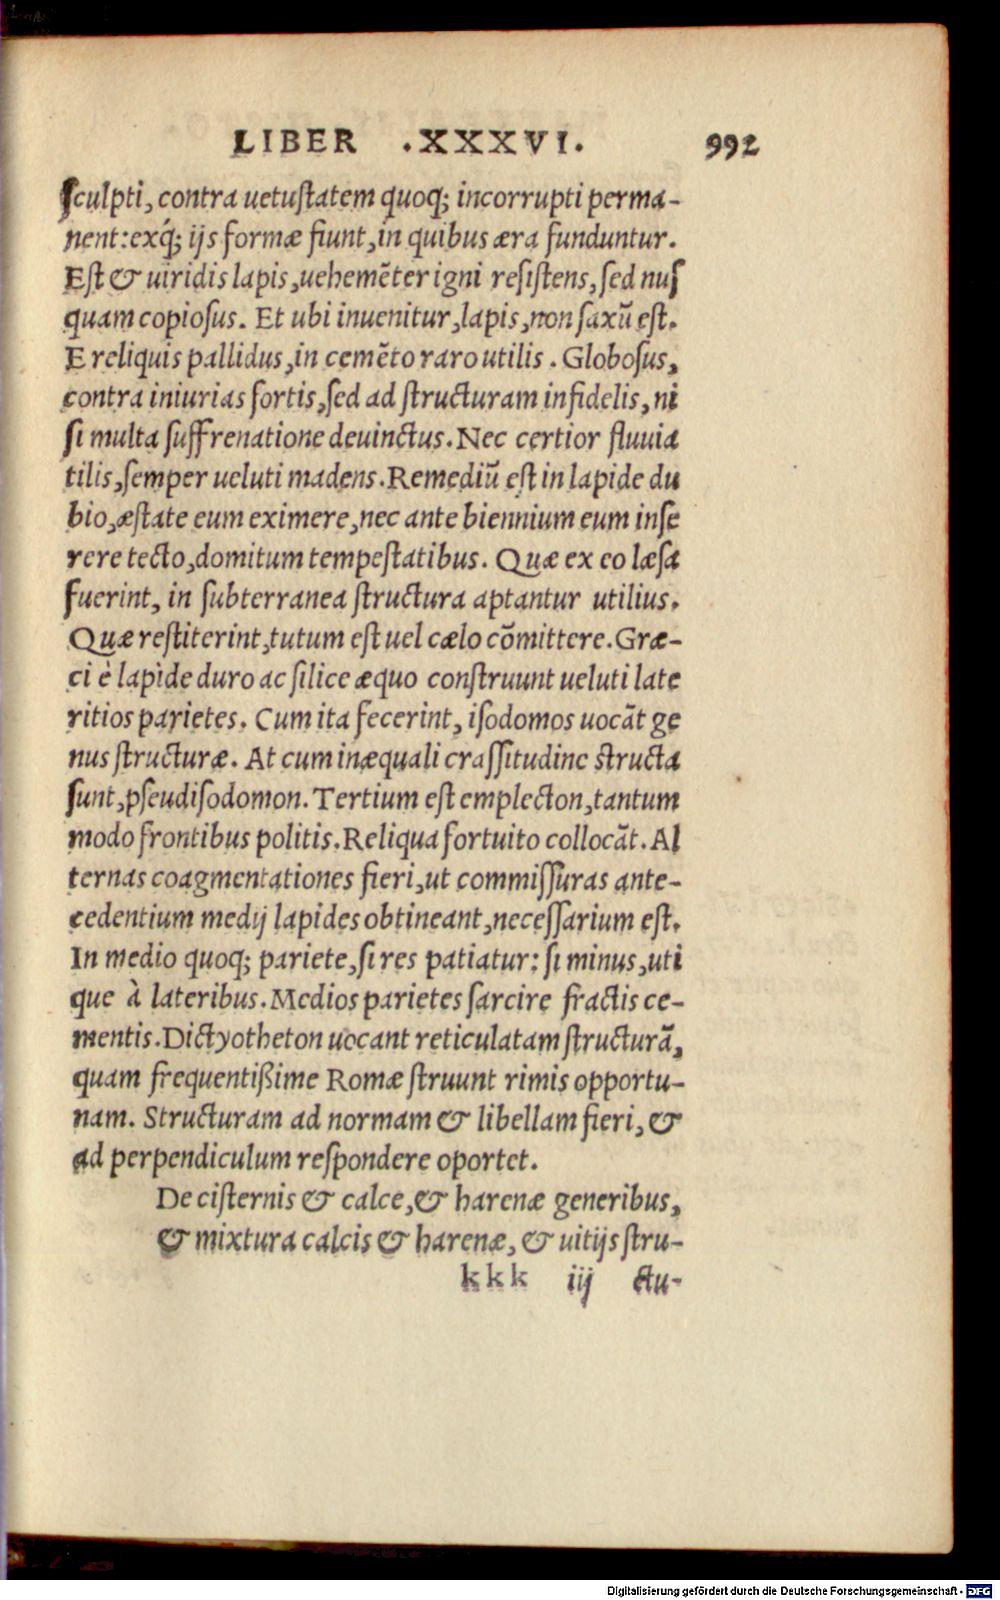 LIBER .XXXVI. 992
ſculpti, contra uetuſtatem quoq; incorrupti perma-
nent: exq́; ijs formæ fiunt, in quibus æra funduntur.
Eſt & uiridis lapis, uehemẽter igni reſiſtens, ſed nuſ
quam copioſus. Et ubi inuenitur, lapis, non ſaxũ eſt.
E reliquis pallidus, in cemẽto raro utilis. Globoſus,
contra iniurias fortis, ſed ad ſtructuram infidelis, ni
ſi multa ſuffrenatione deuinctus. Nec certior fluuia
tilis, ſemper ueluti madens. Remediũ eſt in lapide du
bio, æſtate eum eximere, nec ante biennium eum inſe
rere tecto, domitum tempeſtatibus. Quæ ex eo læſa
fuerint, in ſubterranea ſtructura aptantur utilius.
Quæ reſtiterint, tutum eſt uel cælo cõmittere. Græ-
ci è lapide duro ac ſilice æquo conſtruunt ueluti late
ritios parietes. Cum ita fecerint, iſodomos uocãt ge
nus ſtructuræ. At cum inæquali craſſitudine structa
ſunt, pſeudiſodomon. Tertium eſt emplecton, tantum
modo frontibus politis. Reliqua fortuito collocãt. Al
ternas coagmentationes fieri, ut commiſſuras ante-
cedentium medij lapides obtineant, neceſſarium eſt.
In medio quoq; pariete, ſi res patiatur: ſi minus, uti
que à lateribus. Medios parietes ſarcire fractis ce-
mentis. Dictyotheton uocant reticulatam ſtructurã,
quam frequentißime Romæ ſtruunt rimis opportu-
nam. Structuram ad normam & libellam fieri, &
ad perpendiculum reſpondere oportet.
De ciſternis & calce, & harenæ generibus,
& mixtura calcis & harenæ, & uitijs ſtru-
kkk iij ctu-
Digitalisierung gefördert durch die Deutsche Forschungsgemeinschaft - DFG